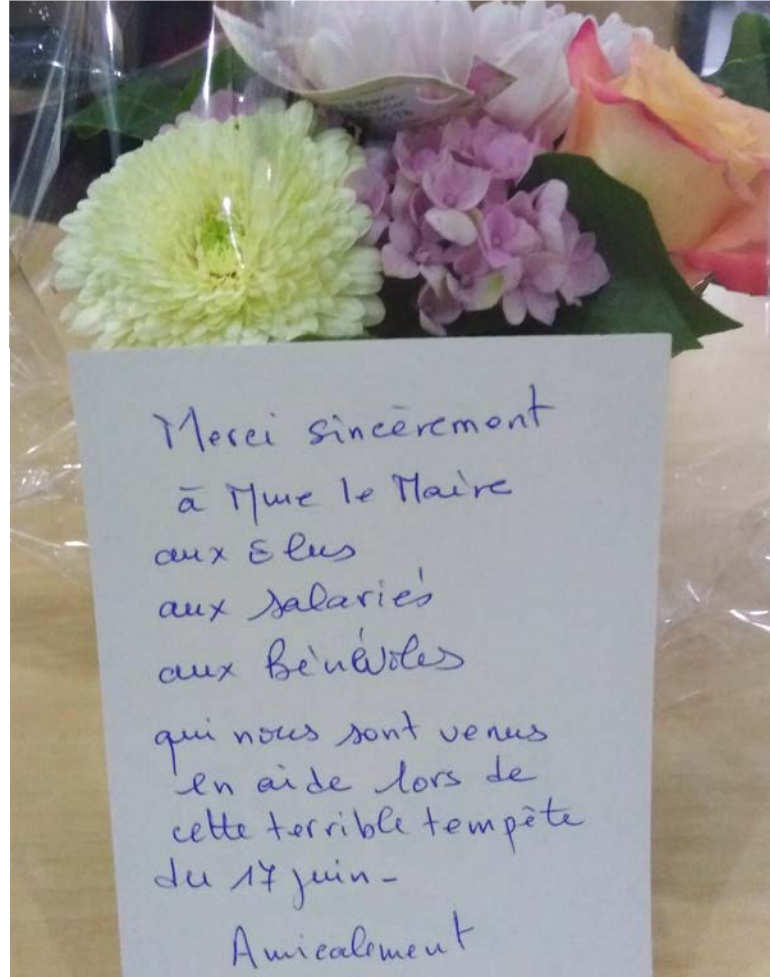 Merci sincèrement
à Mme le Maire
aux Elus
aux salariés
aux Bénévoles
qui nous sont venus
en aide lors de
cette terrible tempête
du 17 juin -
Amicalement